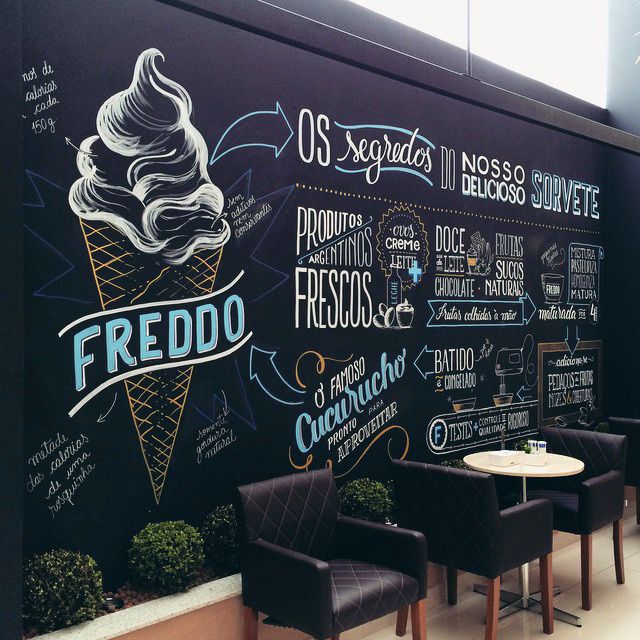 OS segredos DO NOSSO DELICIOSO SORVETE
nos de
calorias
cada
150g
sem
aditivos
nem
conservantes
FREDDO
metade
das calorias
de uma
rosquinha
somente
gordura
natural
PRODUTOS
ARGENTINOS
FRESCOS
OVOS
CREME
LEITE
DOCE
DE LEITE
CHOCOLATE
FRUTAS
SUCOS
NATURAIS
Frutas colhidas à mão
FREDDO
maturada POR 4H
MISTURA
PASTEURIZA
HOMOGENEIZA
MATURA
adicione-se
PEDAÇOS DE FRUTAS
NOZES &
BATIDO
E CONGELADO
F TESTES + CONTROLE DE QUALIDADE RIGOROSO
O FAMOSO
Cucurucho
PRONTO PARA
APROVEITAR